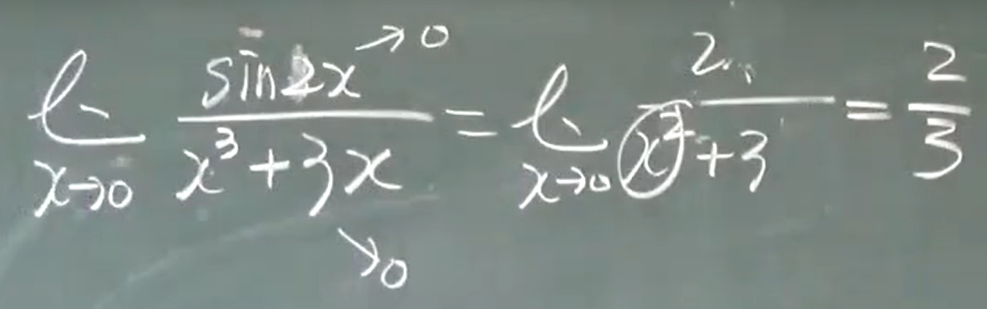 lim x→0 sin2x →0 / x³+3x →0 = lim x→0 2 / x²+3 = 2/3